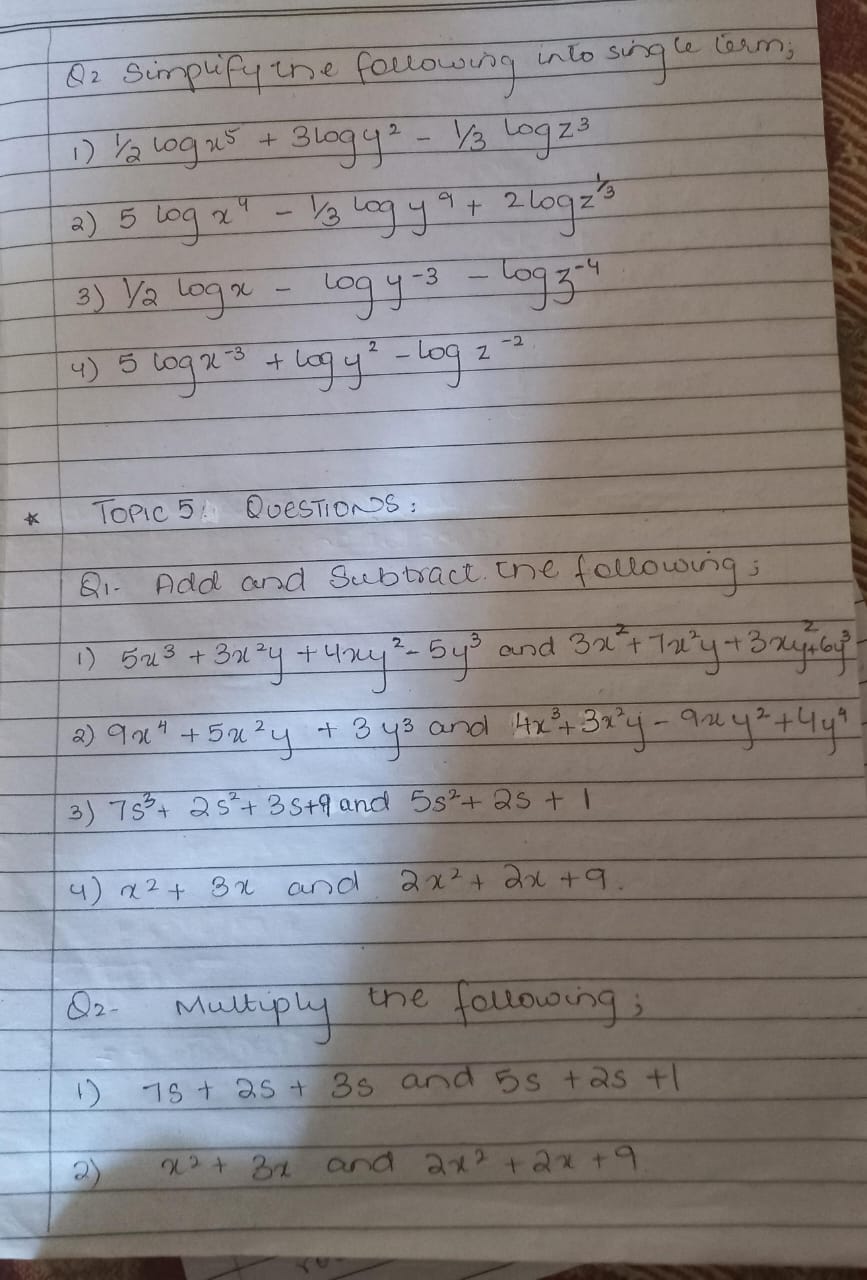 Q2 Simplify the following into single term;
1) 1/2 log x⁵ + 3 log y² - 1/3 log z³
2) 5 log x⁴ - 1/3 log y⁹ + 2 log z^1/3
3) 1/2 log x - log y⁻³ - log z⁻⁴
4) 5 log x⁻³ + log y² - log z⁻²
* TOPIC 5: QUESTIONS:
Q1- Add and Subtract the following;
1) 5x³ + 3x²y + 4xy² - 5y³ and 3x² + 7x²y + 3xy² + 6y³
2) 9x⁴ + 5x²y + 3y³ and 4x³ + 3x²y - 9xy² + 4y⁴
3) 7s³ + 2s² + 3s + 9 and 5s² + 2s + 1
4) x² + 3x and 2x² + 2x + 9.
Q2- Multiply the following;
1) 7s + 2s + 3s and 5s + 2s + 1
2) x² + 3x and 2x² + 2x + 9